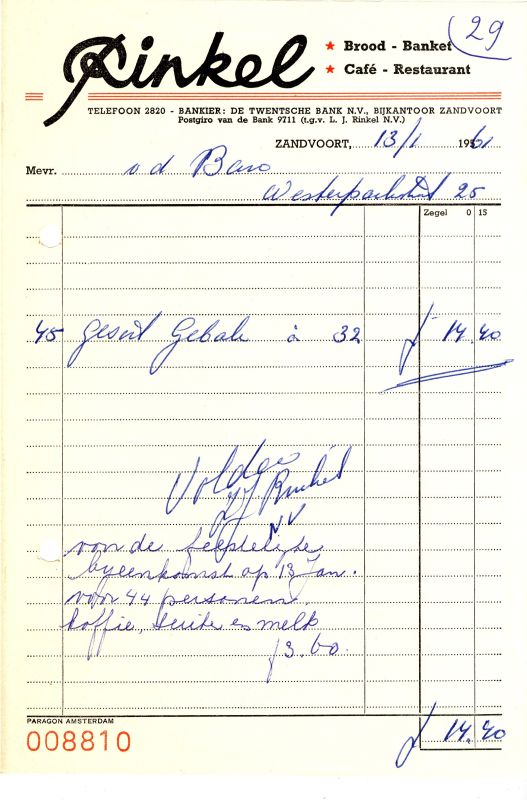 29
Rinkel
★ Brood - Banket
★ Café - Restaurant
TELEFOON 2820 - BANKIER: DE TWENTSCHE BANK N.V., BIJKANTOOR ZANDVOORT
Postgiro van de Bank 9711 (t.g.v. L. J. Rinkel N.V.)
ZANDVOORT, 13/1 1961
Mevr. v d
25
Zegel 0 15
45 gesort Gebak à 32 f 14.40
Voldaan
Rinkel
NV
van de feestelijke
byeenkomst op 13 Jan.
voor 44 personen
koffie, suiker en melk
f 3.60
PARAGON AMSTERDAM
008810
f 14.40